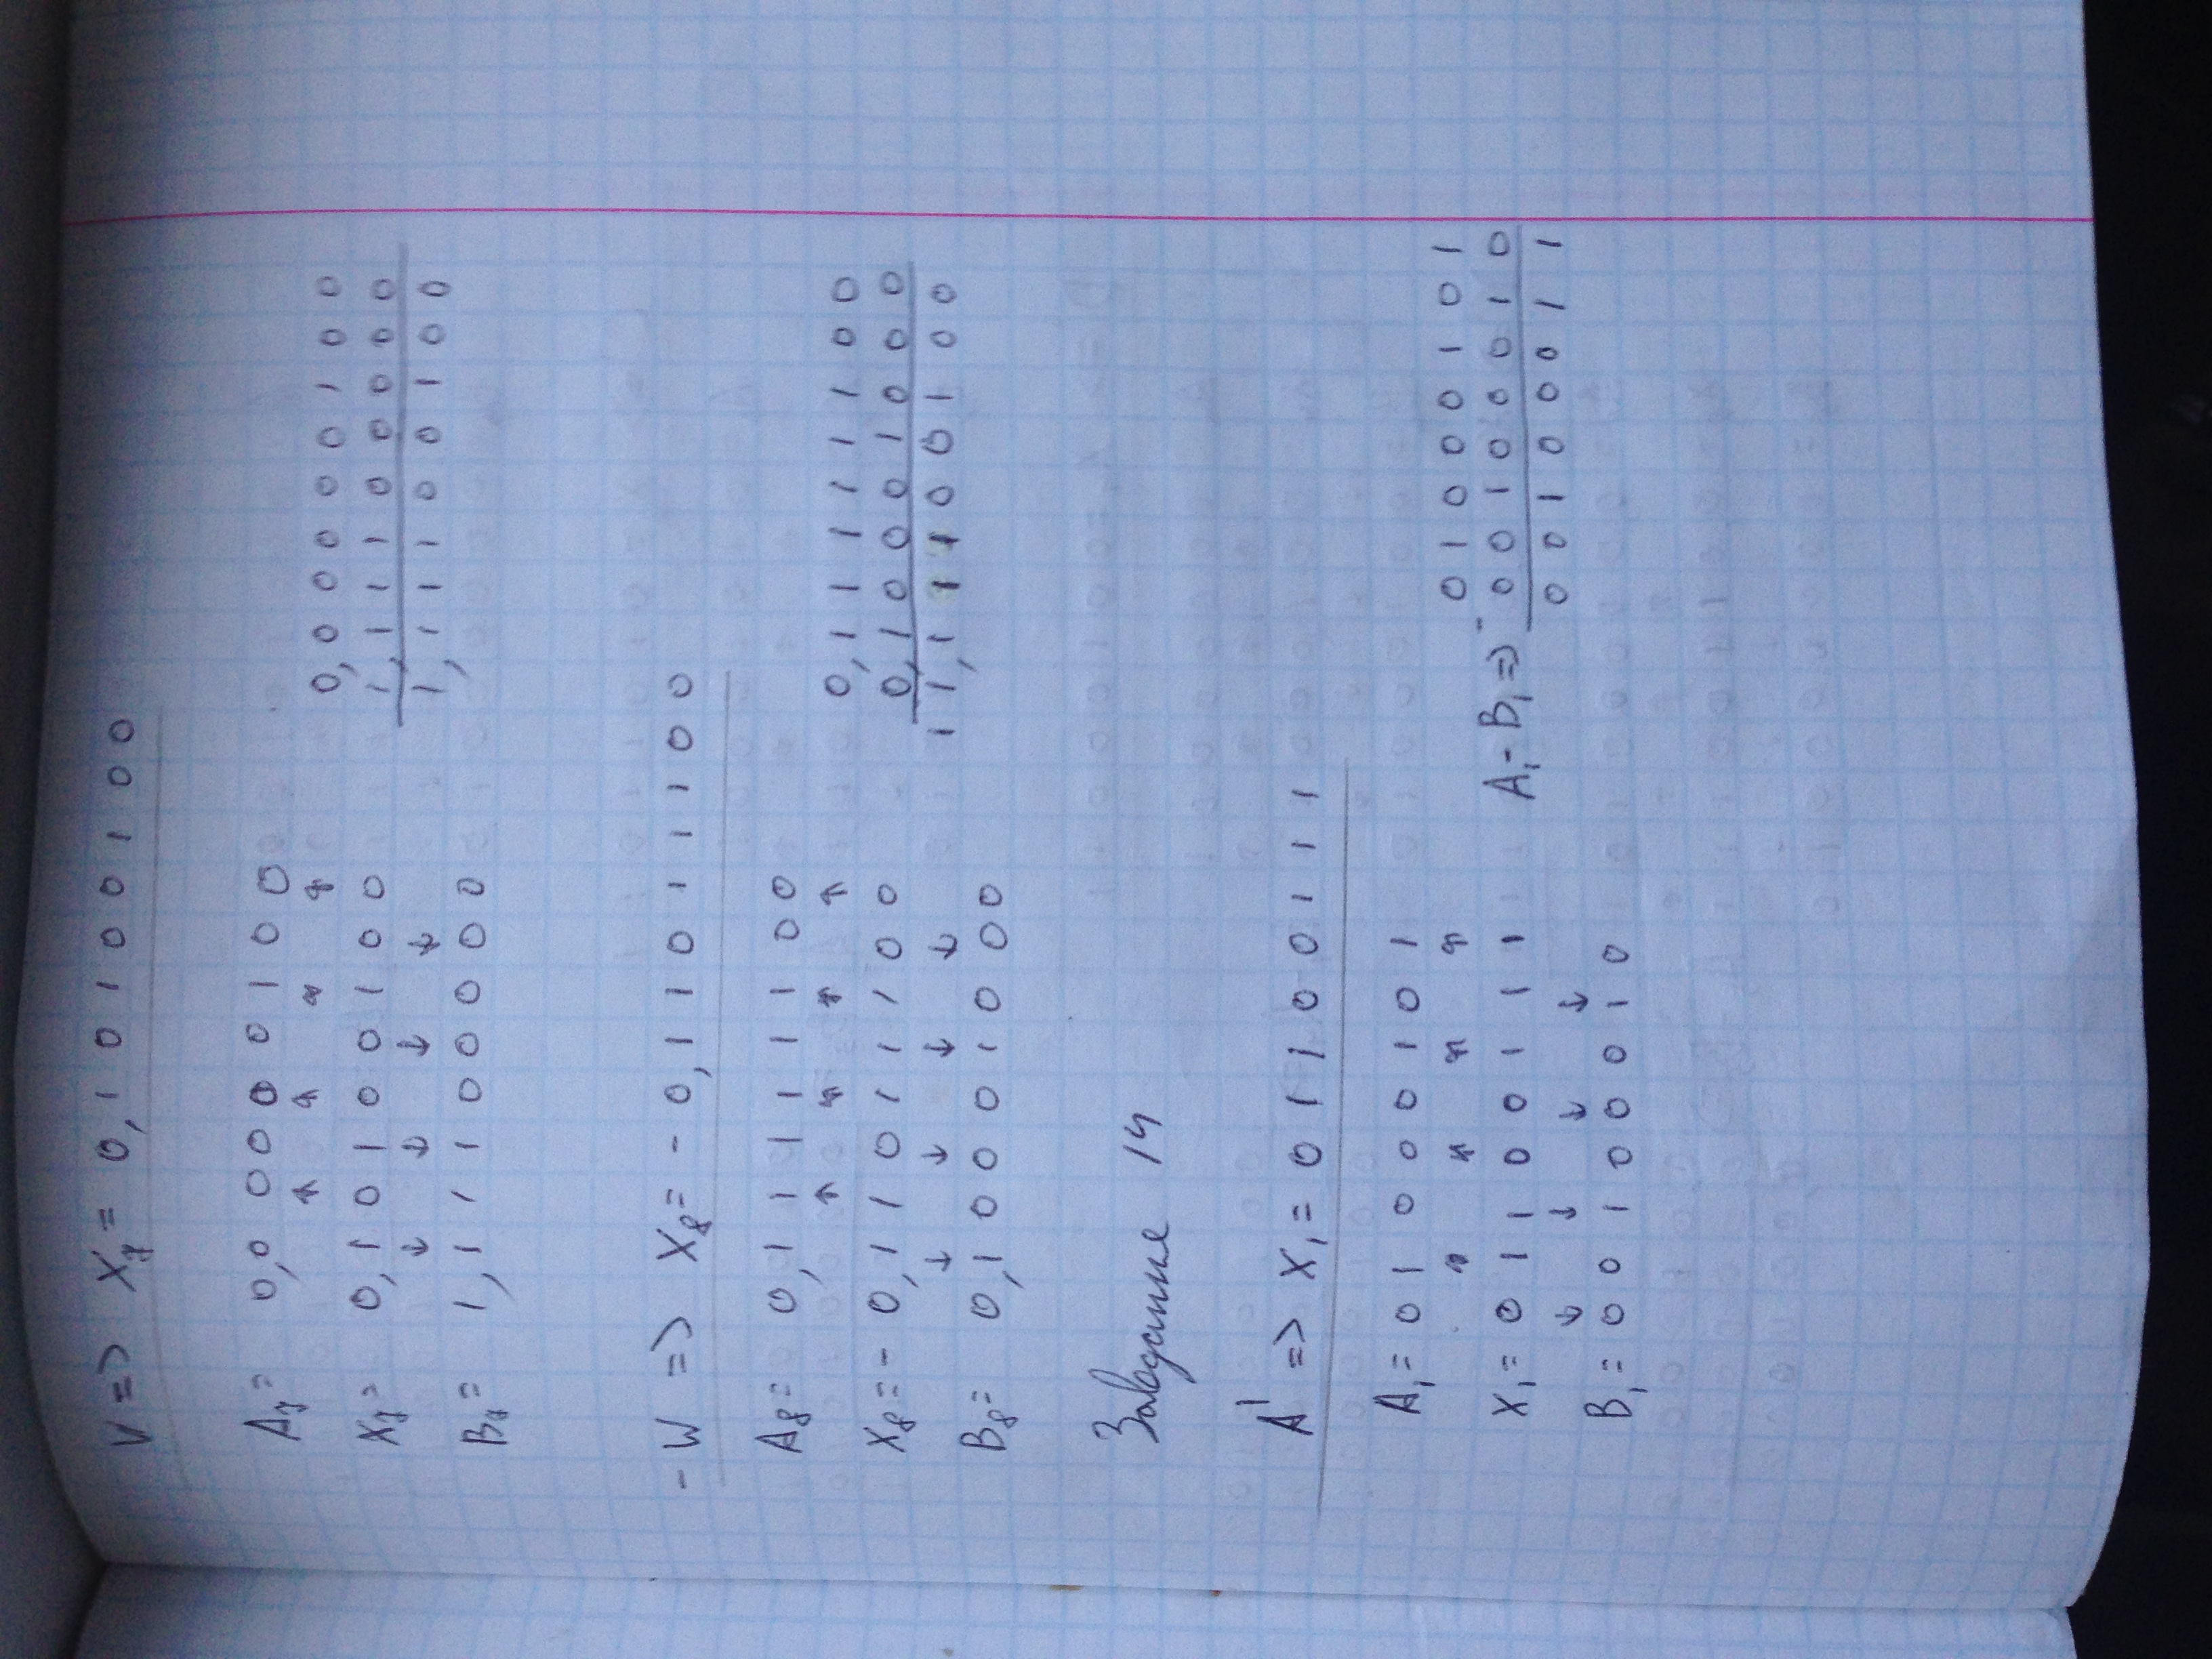 V => X₇ = 0,10100100
A₇ = 0,00000100
X₇ = 0,10100100
B₇ = 1,11100000
0,00000100
1,11100000
1,11100100
- W => X₈ = - 0,11011100
A₈ = 0,11111100
X₈ = - 0,11011100
B₈ = 0,10001000
0,11111100
0,10001000
11,11100100
Завдання 14
A' => X₁ = 01100111
A₁ = 01000101
X₁ = 01100111
B₁ = 00100010
A₁ - B₁ =>
- 01000101
00100010
00100011